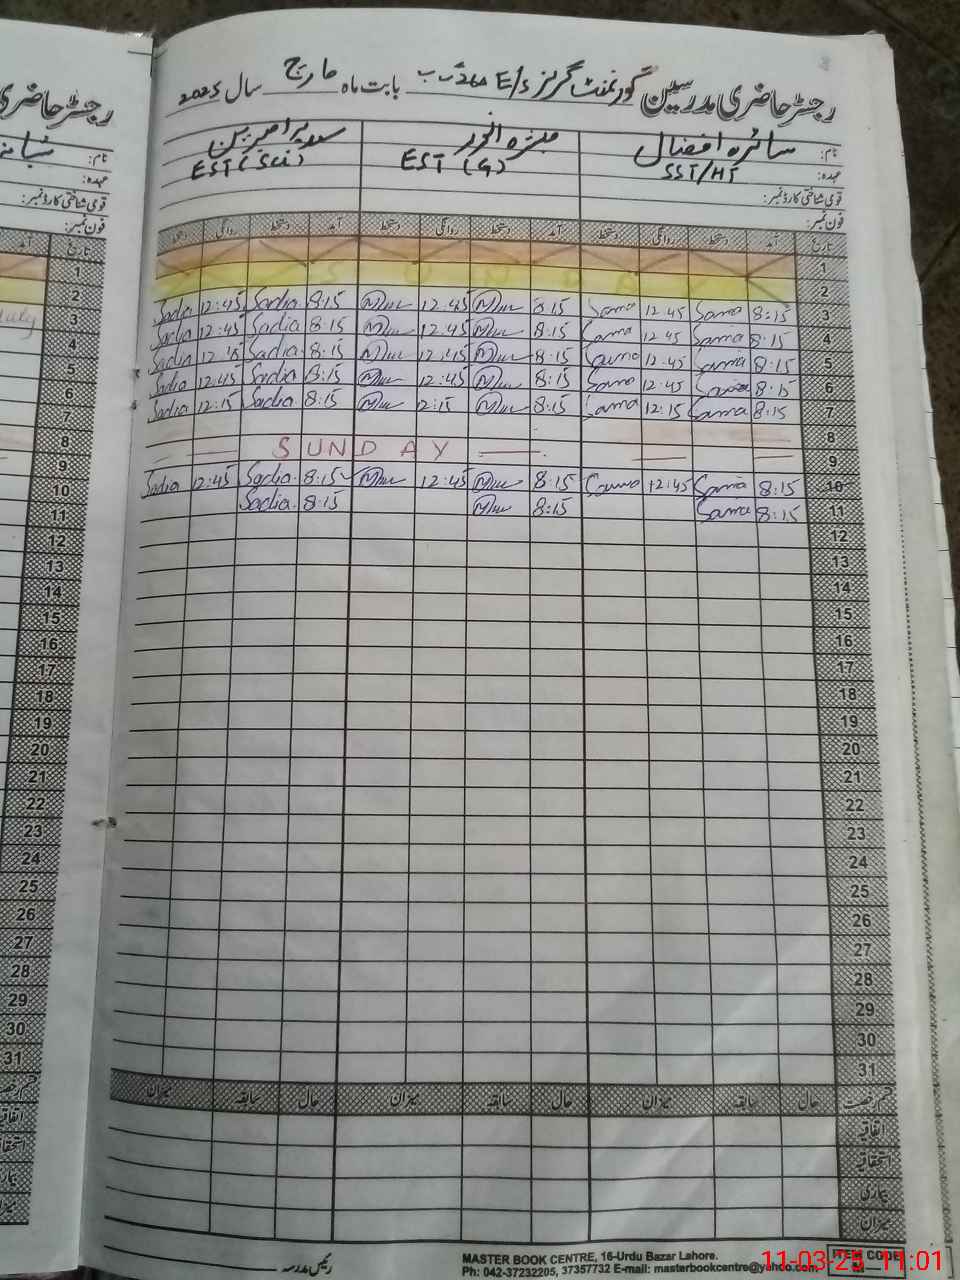 رجسٹر حاضری مدرسین گورنمنٹ گرلز E/S 260 ر ب بابت ماہ مارچ سال 2025
نام: سائرہ افضال منزہ انور سعدیہ امبرین
عہدہ: SST/HT EST (G) EST (Sci)
قومی شناختی کارڈ نمبر:
فون نمبر:
تاریخ آمد دستخط روانگی دستخط آمد دستخط روانگی دستخط آمد دستخط روانگی دستخط
1
2 S U N D A
3 8:15 Sama 12:45 Sama 8:15 12:45 8:15 Sadia 12:45 Sadia
4 8:15 Sama 12:45 Sama 8:15 12:45 8:15 Sadia 12:45 Sadia
5 8:15 Sama 12:45 Sama 8:15 12:45 8:15 Sadia 12:45 Sadia
6 8:15 Sama 12:45 Sama 8:15 12:45 8:15 Sadia 12:45 Sadia
7 8:15 Sama 12:15 Sama 8:15 12:15 8:15 Sadia 12:15 Sadia
8
9 SUNDAY
10 8:15 Sama 12:45 Sama 8:15 12:45 8:15 Sadia 12:45 Sadia
11 8:15 Sama 8:15 8:15 Sadia
12
13
14
15
16
17
18
19
20
21
22
23
24
25
26
27
28
29
30
31
قسم رخصت حال سابقہ میزان حال سابقہ میزان حال سابقہ میزان
اتفاقیہ
استحقاقیہ
بیماری
میزان
رئیس مدرسہ
MASTER BOOK CENTRE, 16-Urdu Bazar Lahore.
Ph: 042-37232205, 37357732 E-mail: masterbookcentre@yahoo.com
ITEM CODE
11-03-25 11:01
رجسٹر حاضری
نام:
عہدہ:
قومی شناختی کارڈ نمبر:
فون نمبر:
تاریخ آمد
1
2
3
4
5
6
7
8
9
10
11
12
13
14
15
16
17
18
19
20
21
22
23
24
25
26
27
28
29
30
31